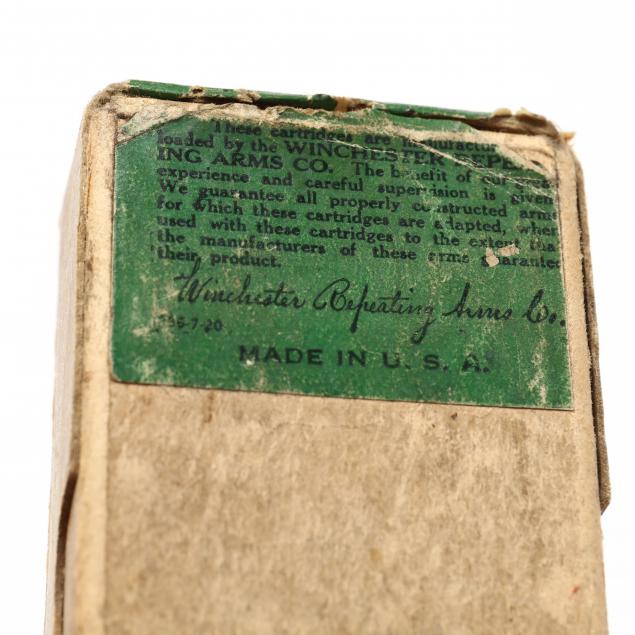 These cartridges are
loaded by the WINCHESTER
ING ARMS CO. The benefit of our
experience and careful supervision is given
We guarantee all properly constructed arms
for which these cartridges are adapted, when
used with these cartridges to the extent that
the manufacturers of these arms guarantee
their product.
Winchester Repeating Arms Co.
6-7-20
MADE IN U. S. A.